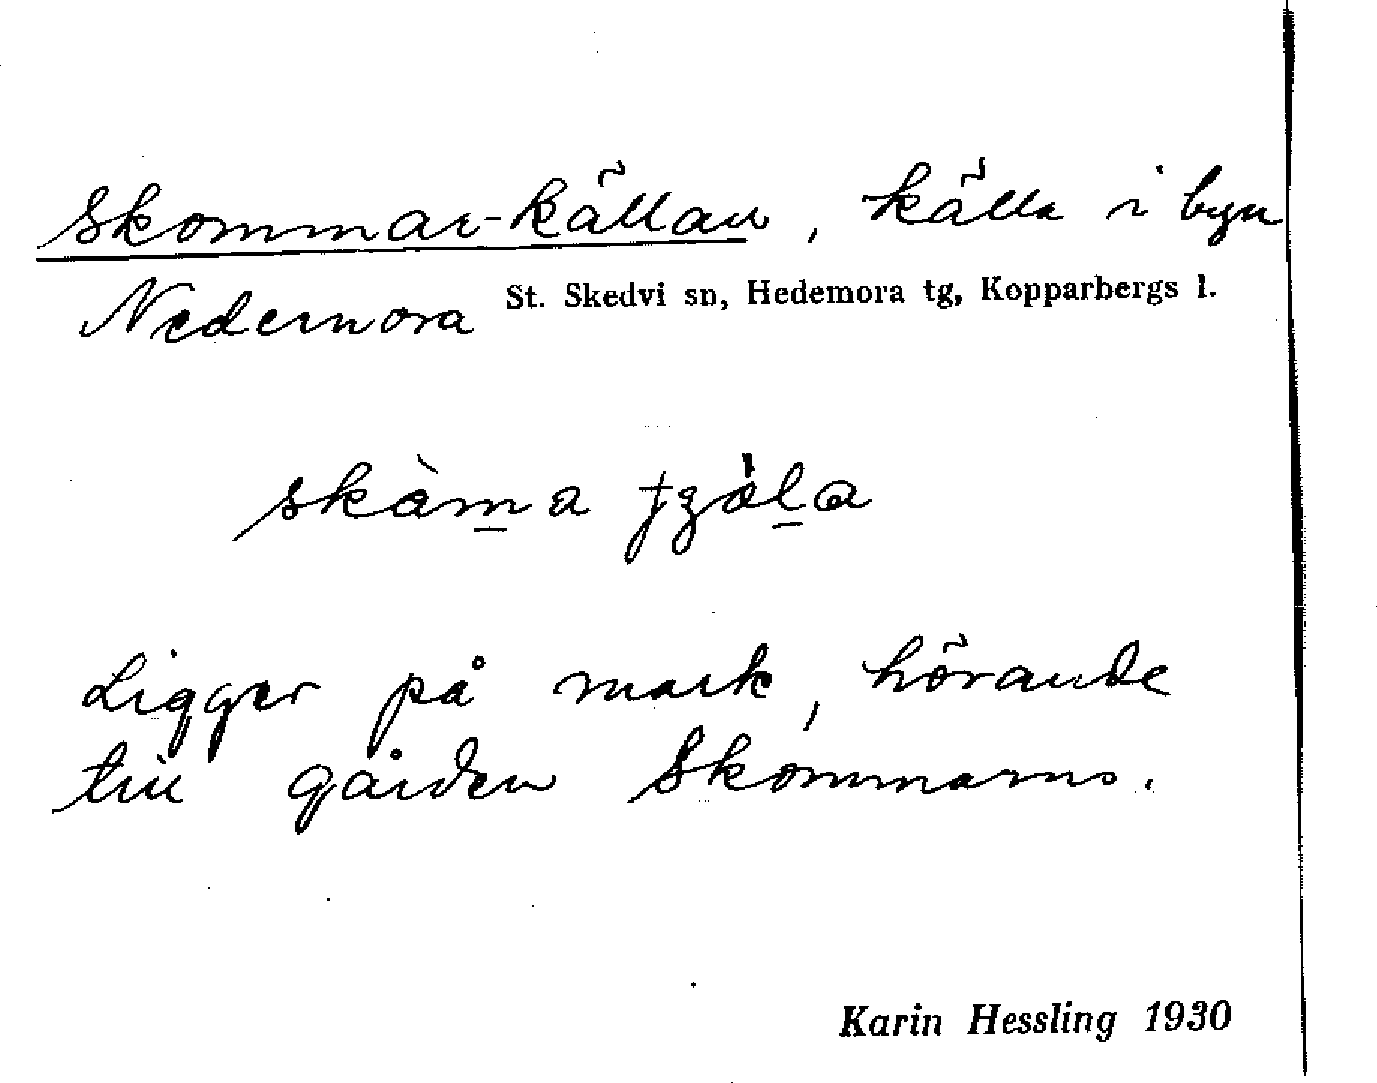 Skommar-källan, källa i byn
Nedernora St. Skedvi sn, Hedemora tg, Kopparbergs l.
Ligger på mark, hörande
till gården Skommarns.
Karin Hessling 1930